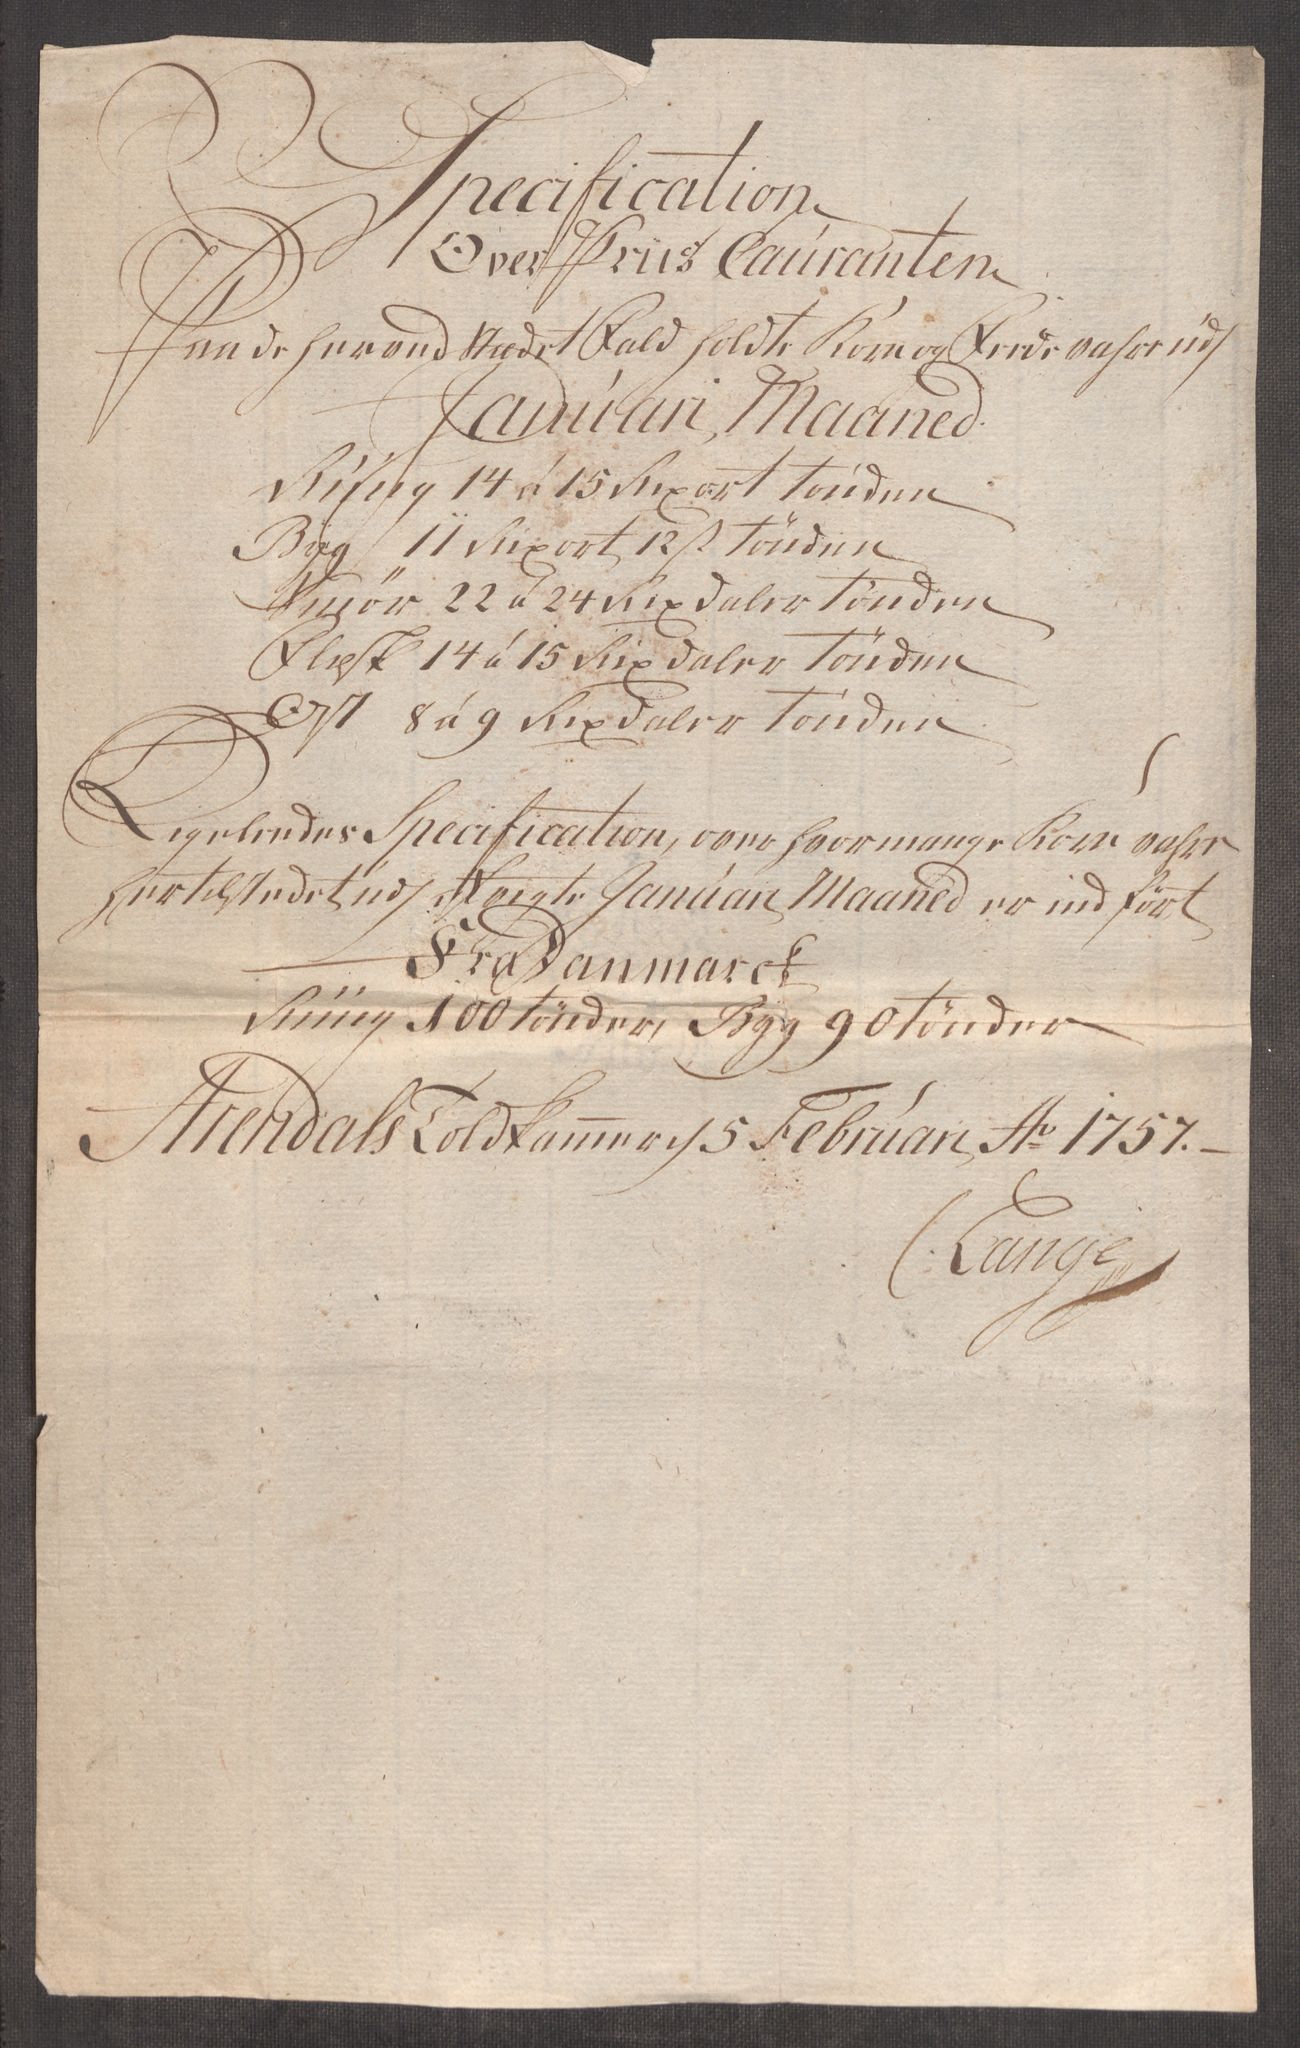 Specification
Over Priis Cauranten
Paa de her ved Stædet Fald holdte Korn og Feede vahre udj
Januari Maaned.
Rúg 14 á 15 Rixort Tønden
Byg 11 Rixort 12 s Tønden
Smør 22 á 24 Rixdaler Tønden
Flesk 14 á 15 Rixdaler Tønden
Ost 8 á 9 Rixdaler Tønden
Ligeleedes Specification, over hvor mange Korn vahre
her til Stedet udj Januari Maaned er ind ført
Fra Danmarck
Rúg 100 tønder, Byg 90 tønder
Arendals Toldkammer d 5 Februari Ao 1757.
C: Lange